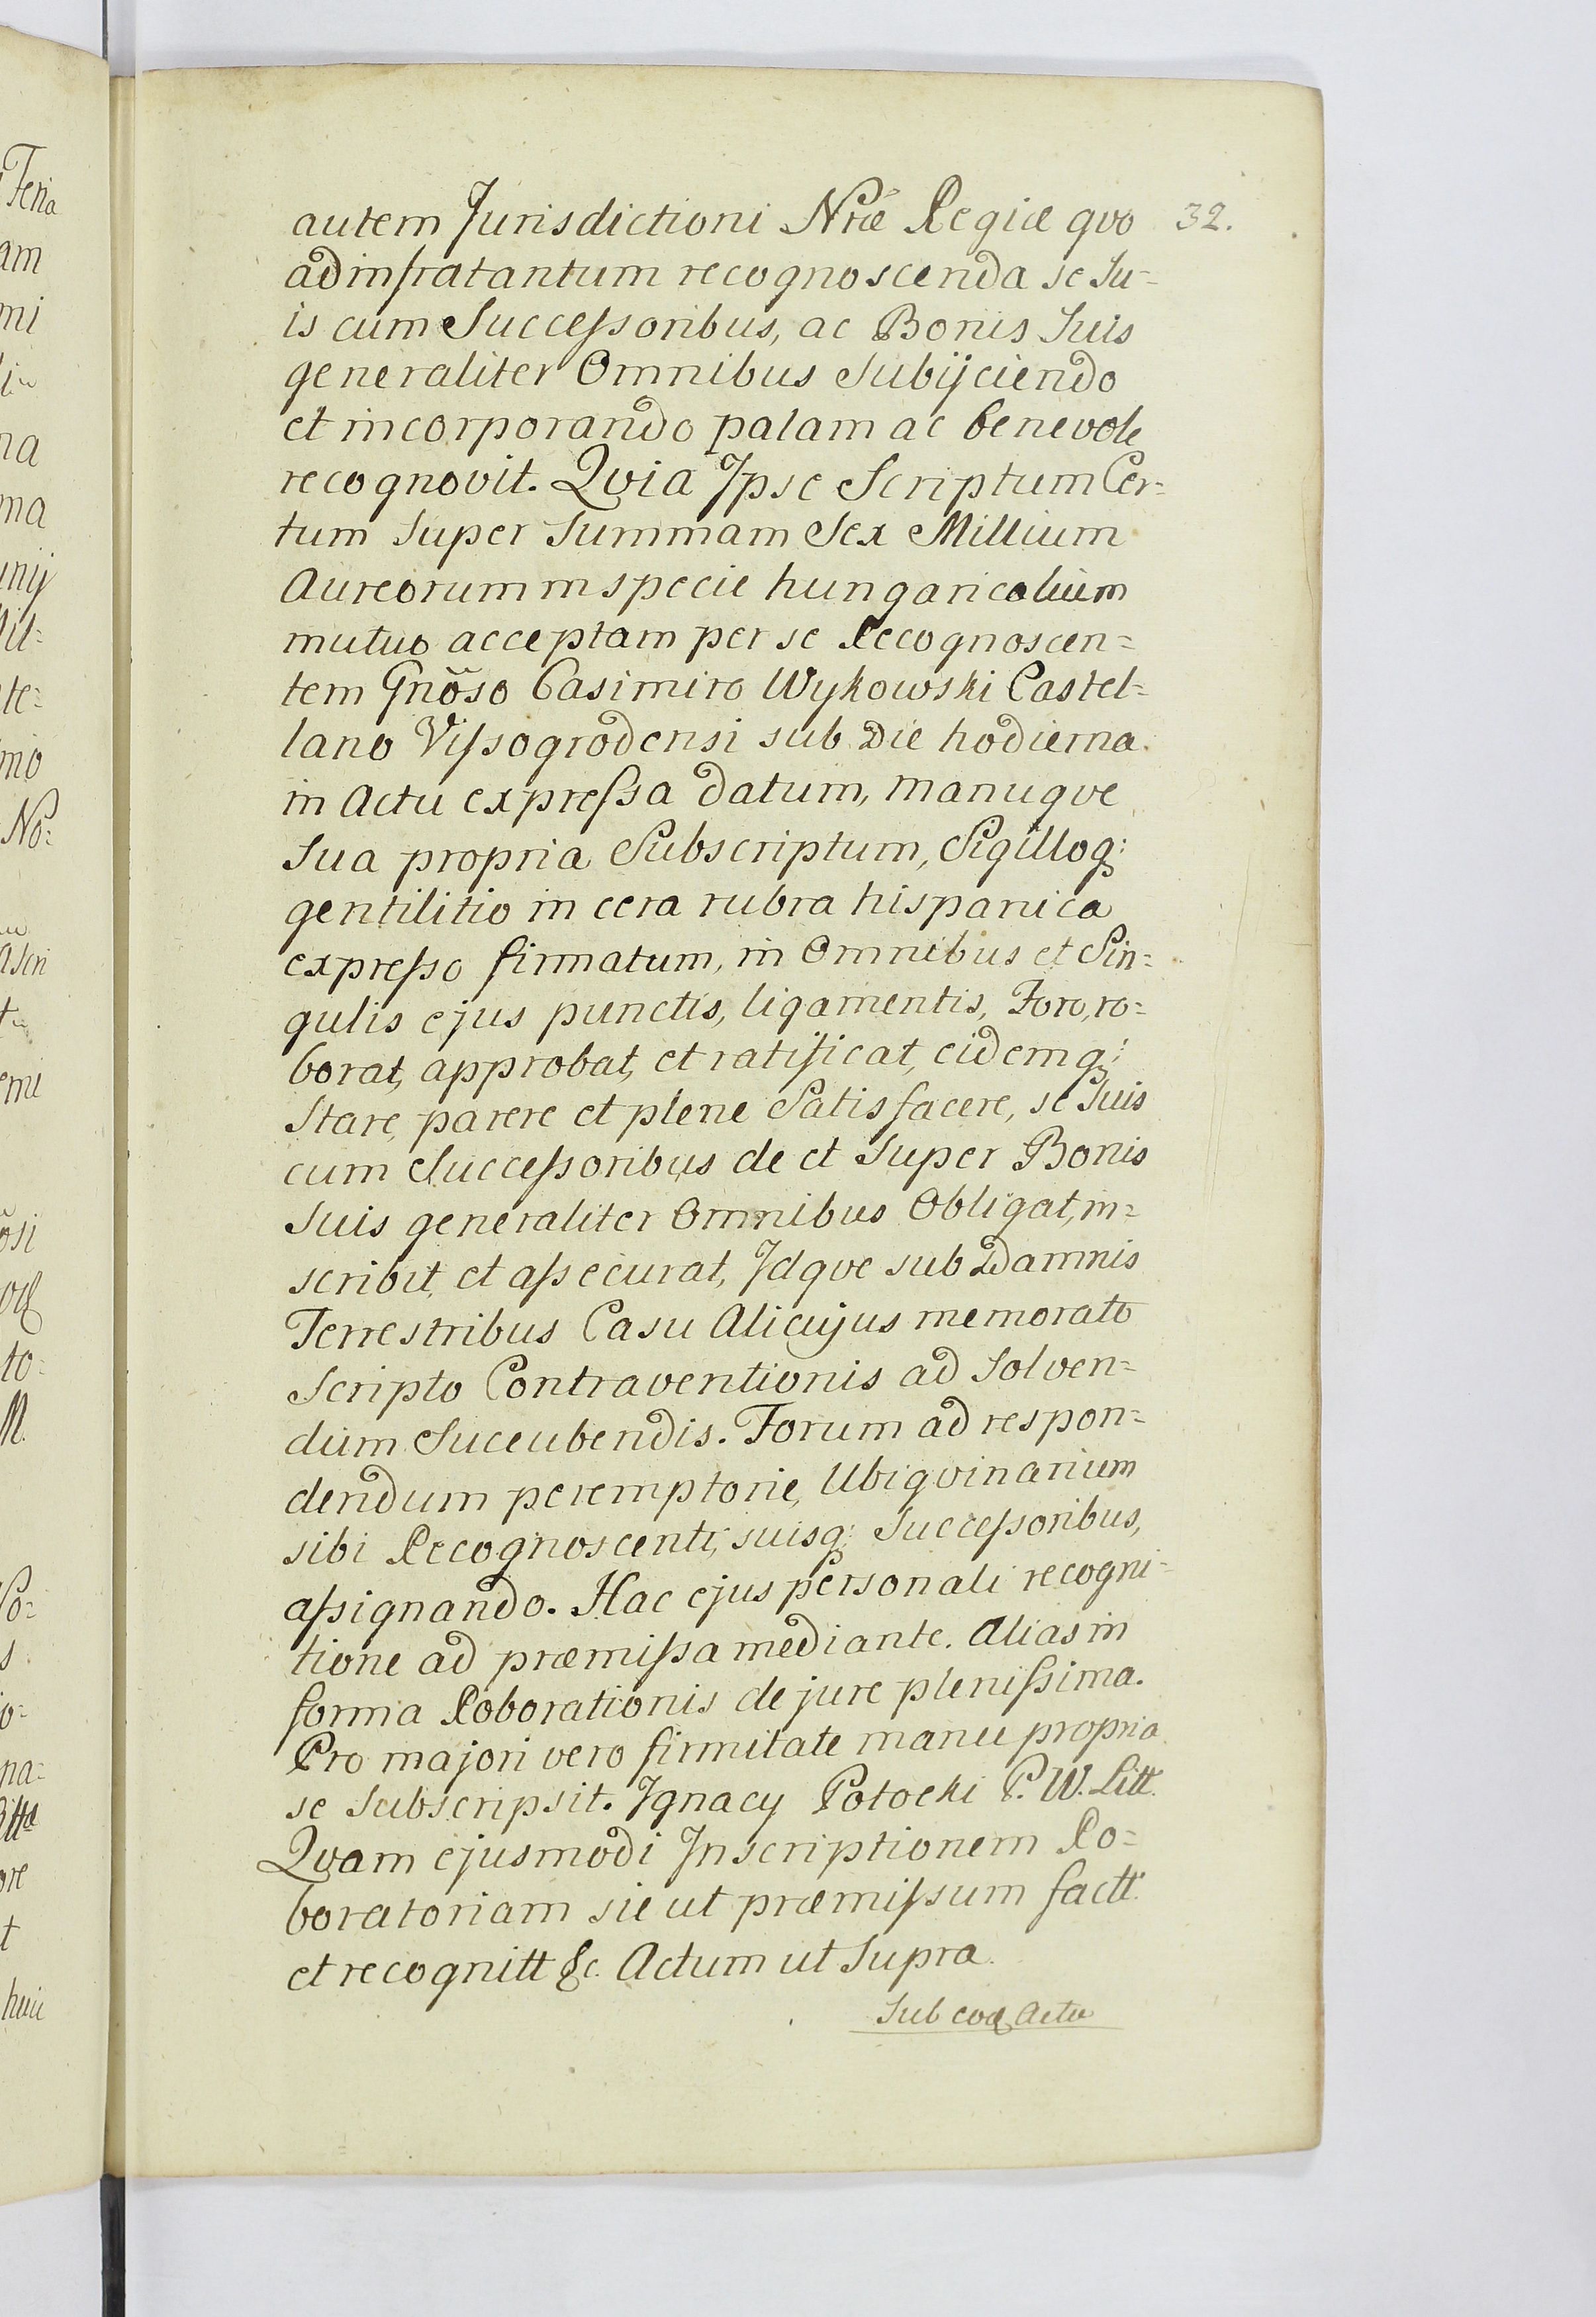 autem Jurisdictioni Nræ Regiæ qvo 32.
ad infratantum recognoscenda se Su=
is cum Successoribus, ac Bonis Suis
generaliter Omnibus Subijciendo
et incorporando palam ac benevole
recognovit. Qvia Ipse Scriptum Cer=
tum Super Summam Sex Millium
Aureorum in specie hungaricalium
mutuo acceptam per se Recognoscen=
tem Gnõso Casimiro Wykowski Castel=
lano Vissogrodensi sub Die hodierna
in Actu expressa datum, manuqve
Sua propria Subscriptum, Sigilloq:
gentilitio in cera rubra hispanica
expresso firmatum, in Omnibus et Sin=
gulis ejus punctis, ligamentis, Foro, ro=
borat, approbat, et ratificat, eidemq:
Stare, parere et plene Satisfacere, se Suis
cum Successoribus de et Super Bonis
Suis generaliter Omnibus Obligat, in=
scribit, et assecurat, Idqve sub Damnis
Terrestribus Casu Alicujus memorato
Scripto Contraventionis ad Solven=
dum Succubendis. Forum ad respon=
dendum peremptorie, Ubiqvinarium
sibi Recognoscenti, suisq: Successoribus,
assignando. Hac ejus personali recogni=
tione ad præmissa mediante. Alias in
forma Roborationis de jure plenissima.
Pro majori vero firmitate manu propria
se Subscripsit. Ignacy Potocki P. W. Litt.
Qvam ejusmodi Inscriptionem Ro=
boratoriam sic ut præmissum factt.
et recognitt &c. Actum ut Supra.
Sub eoq Actu